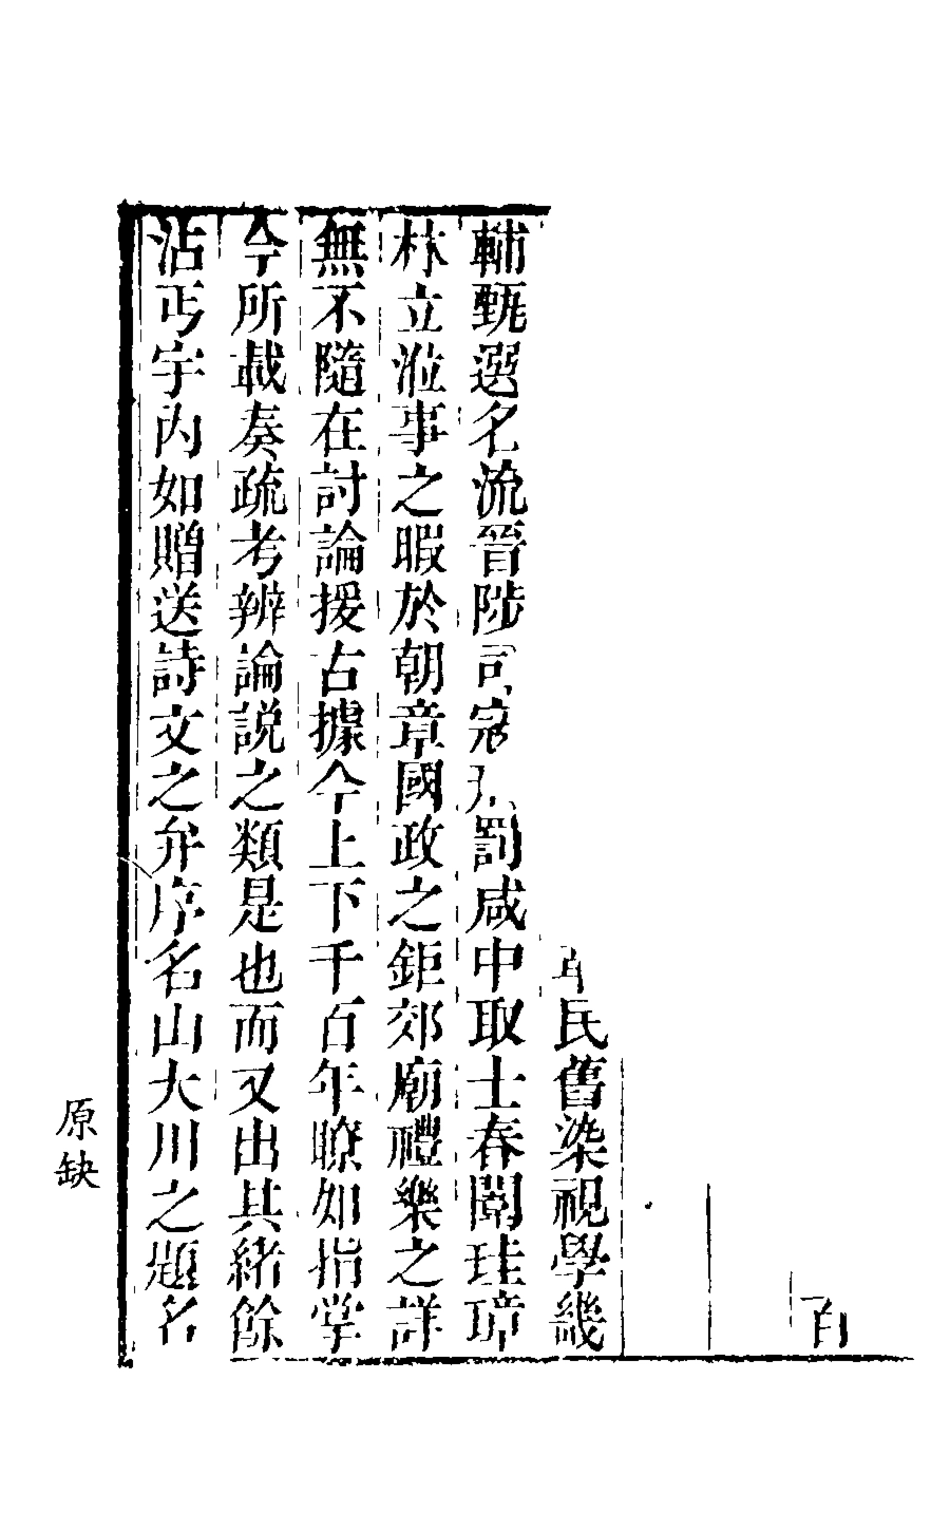 百
民舊染視學畿
輔甄選名流晉陟司寇刑罰咸中取士春闈珪璋
林立涖事之暇於朝章國政之鉅郊廟禮樂之詳
無不隨在討論援古據今上下千百年瞭如指掌
今所載奏疏考辨論說之類是也而又出其緒餘
沾丐宇內如贈送詩文之弁序名山大川之題名
原缺